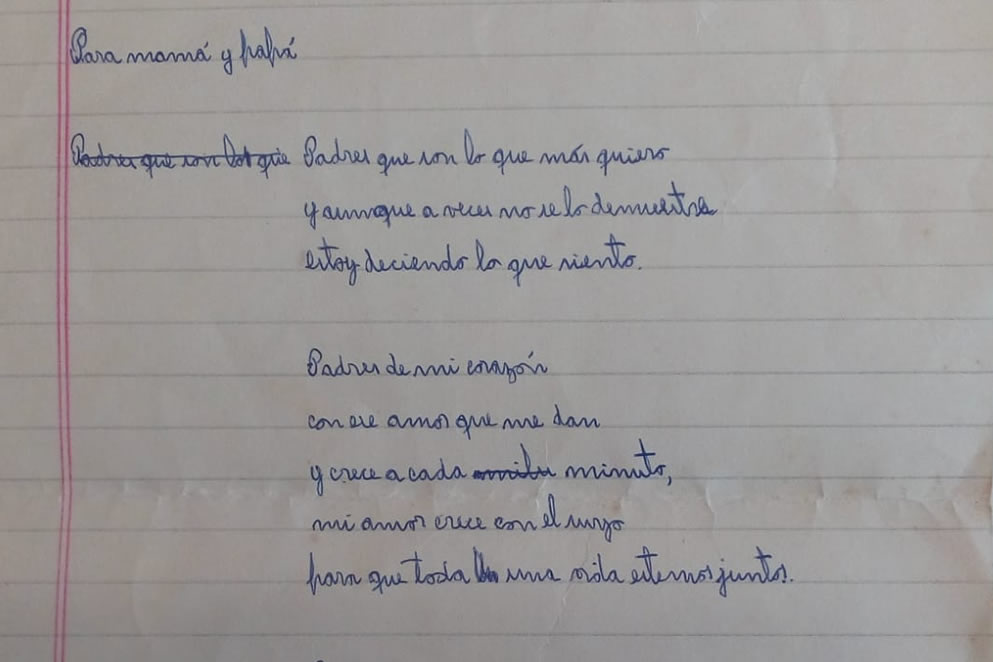 Para mamá y papá
Padres que son lo que Padres que son lo que más quiero
y aunque a veces no se lo demuestre
estoy deciendo lo que siento.
Padres de mi corazón
con ese amor que me dan
y crece a cada minuto,
mi amor crece con el suyo
para que toda una vida estemos juntos.